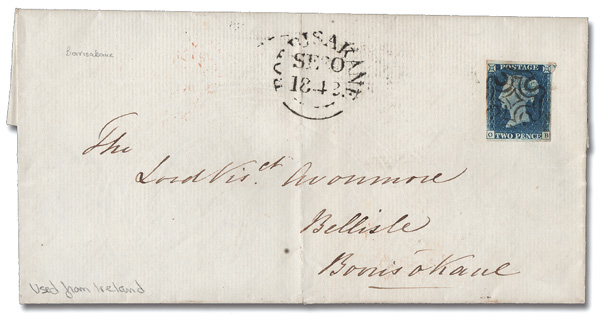 Borrisokane
BORRISAKANE
SE
184
POSTAGE
TWO PENCE
The
Lord Visct. Avonmore
Bellisle
Borris o Kane
Used from Ireland